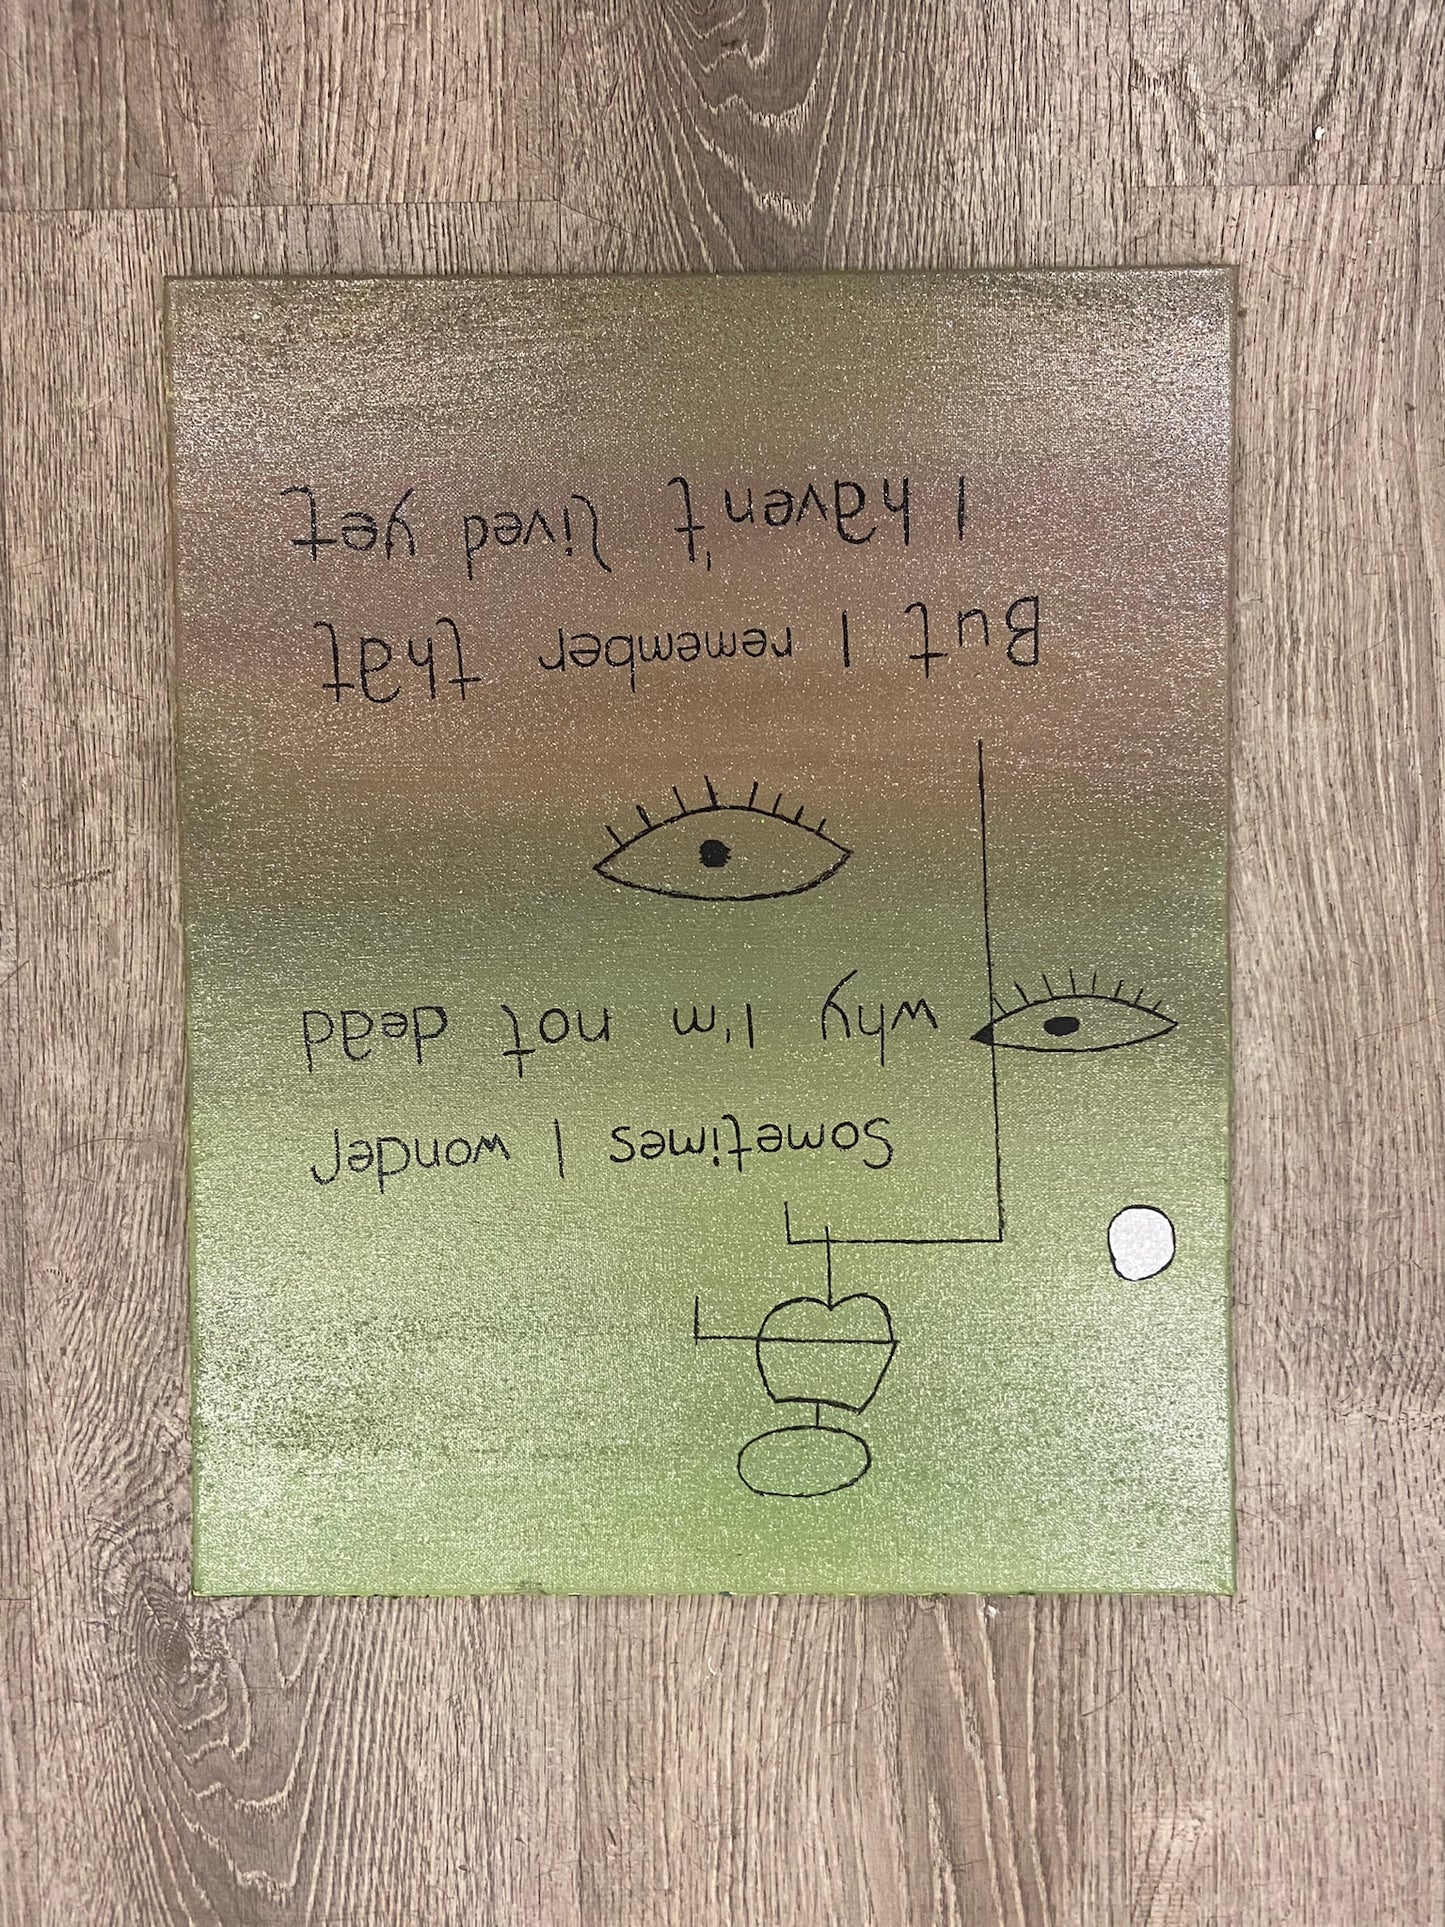 Sometimes I wonder
why I'm not dead
But I remember that
I haven't lived yet